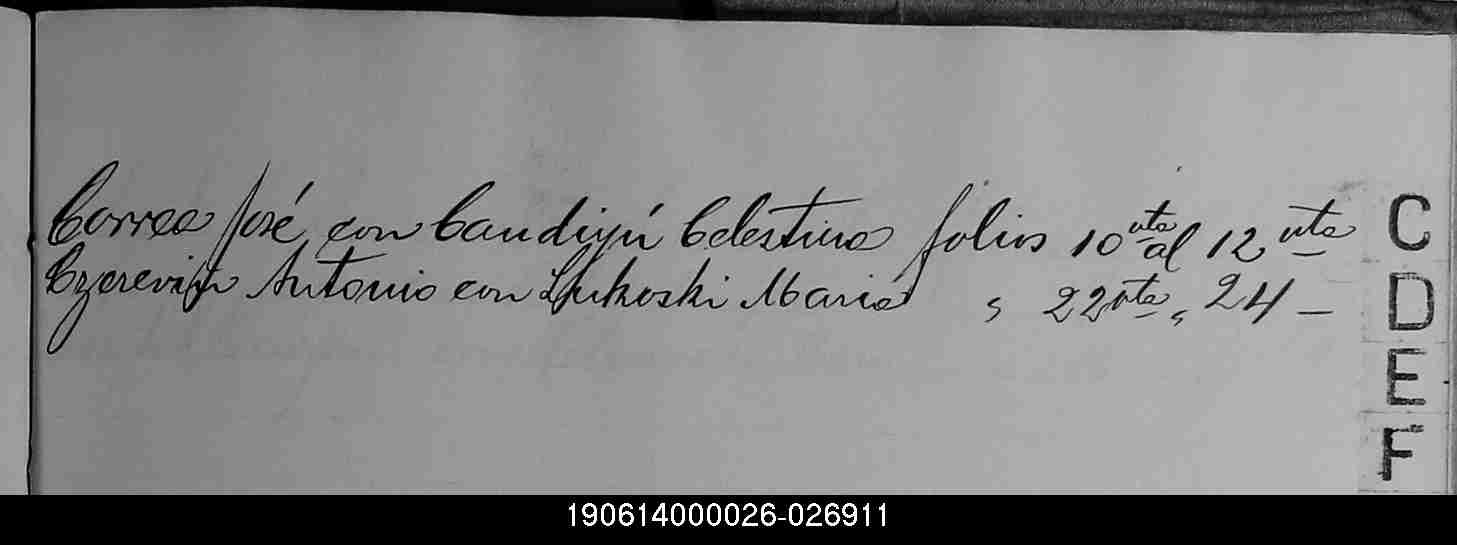 Correa José con Candiyú Celestina folios 10 vta al 12 vta
Antonio con Maria " 22 vta " 24 —
C
D
E
F
190614000026-026911